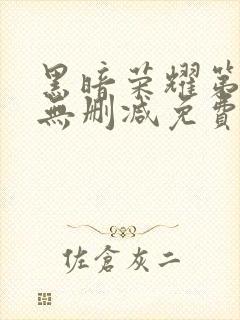 黑暗荣耀第
無删减免費
佐倉灰二